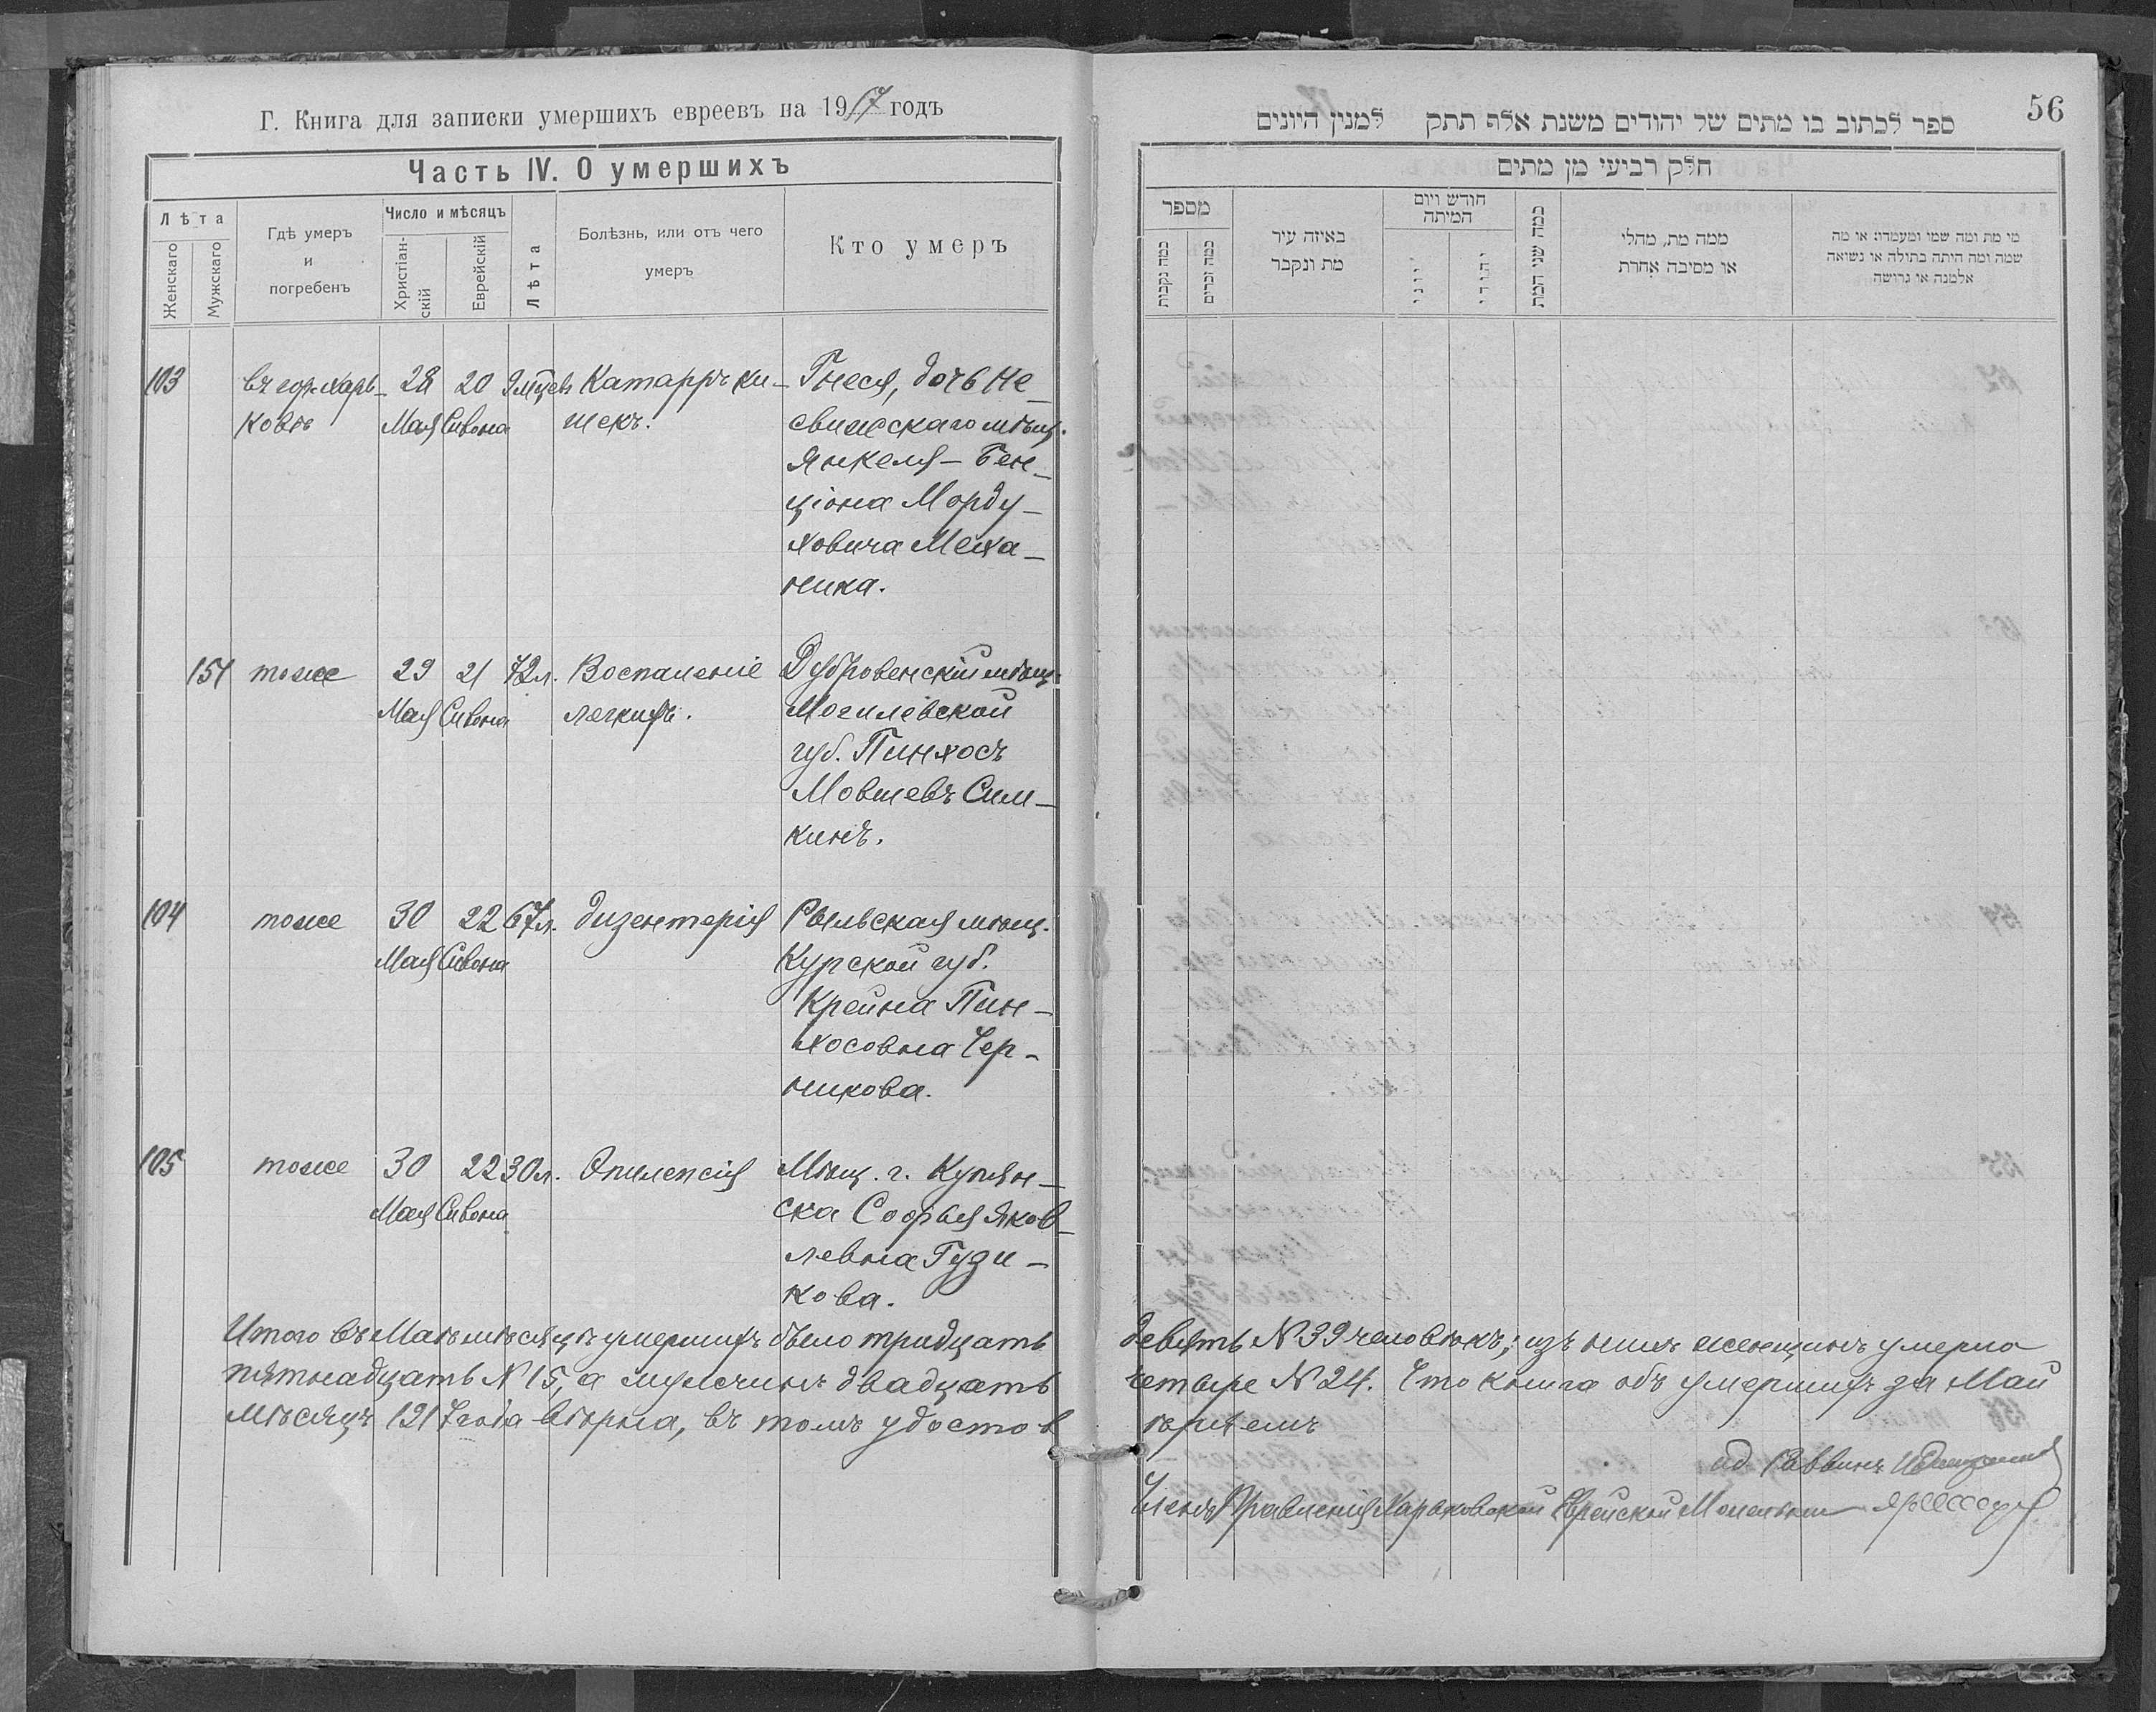 Г. Книга для записки умершихъ евреевъ на 1917 годъ
Часть IV. О умершихъ
Лѣта
Женскаго
Мужскаго
Гдѣ умеръ
и
погребенъ
Число и мѣсяцъ
Христіан-
скій
Еврейскій
Лѣта
Болѣзнь, или отъ чего
умеръ
Кто умеръ
103 въ гор. Харь- 28 20 Катарръ ки- Гнеся, дочь Не-
ковѣ Мая Сивона шекъ. свижскаго мѣщ.
Янкеля-Бен-
ціона Морду-
ховича Меха-
ника.
151 тоже 29 21 72л. Воспаленіе Дубровенскій мѣщ.
Мая Сивона легкихъ. Могилевской
губ. Пинхосъ
Мовшевъ Сим-
кинъ.
104 тоже 30 22 67л. Дизентерія Рыльская мѣщ.
Мая Сивона Курской губ.
Крейна Пин-
хосовна Чер-
никова.
105 тоже 30 22 30л. Эпилепсія Мѣщ. г. Купян-
Мая Сивона ска Софья Яков-
левна Гузи-
кова.
Итого въ Маѣ мѣсяцѣ умершихъ было тридцать
пятнадцать №15, а мужчинъ двадцать
мѣсяцъ 1917 года вѣрна, въ томъ удостов
56
ספר לכתוב בו מתים של יהודים משנת אלף תתק למנין היונים
חלק רביעי מן מתים
מספר
כמה נקבות
כמה זכרים
באיזה עיר
מת ונקבר
חודש ויום
המיתה
יוני
יהודי
כמה שני המת
ממה מת, מחלי
או מסיבה אחרת
מי מת ומה שמו ומעמדו: או מה
שמה ומה היתה בתולה או נשואה
אלמנה או גרושה
девять №39 человѣкъ; изъ нихъ женщинъ умерло
четыре №24. Что книга объ умершихъ за Май
ѣряемъ
ид. Раввинъ
Членъ Правленія Харьковской Еврейской Молельни